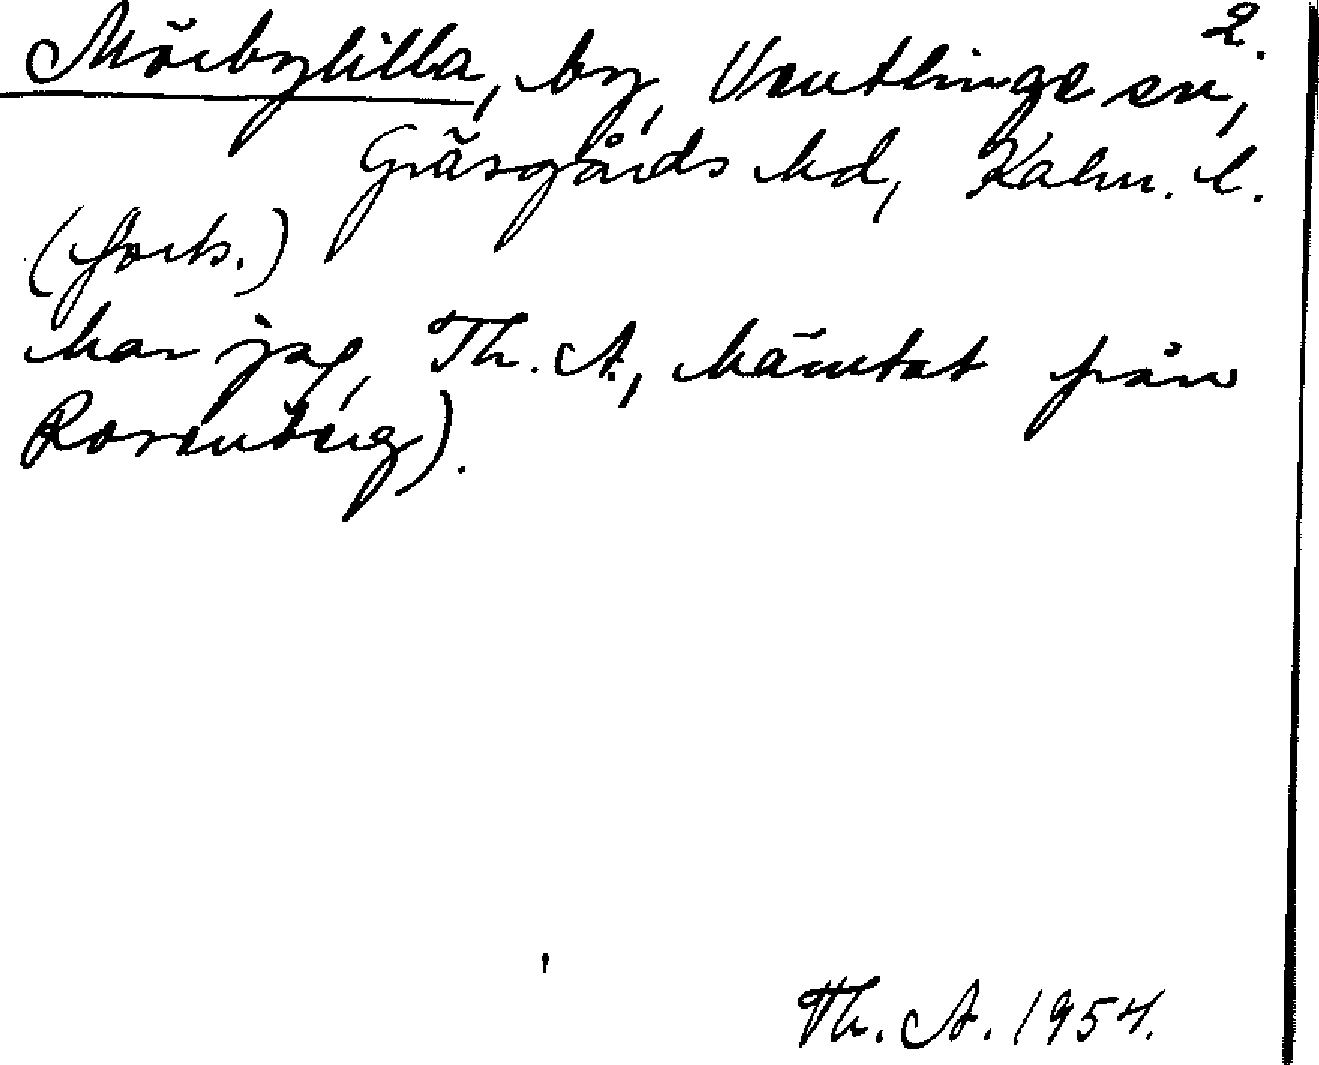 2.
Mörbylilla, by, Ventlinge sn,
Gräsgårds hd, Kalm. l.
(forts.)
har jag, Th. A., hämtat från
Rosenberg).
Th. A. 1954.